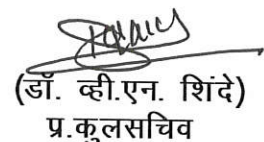 (डॉ. व्ही.एन. शिंदे)
प्र.कुलसचिव